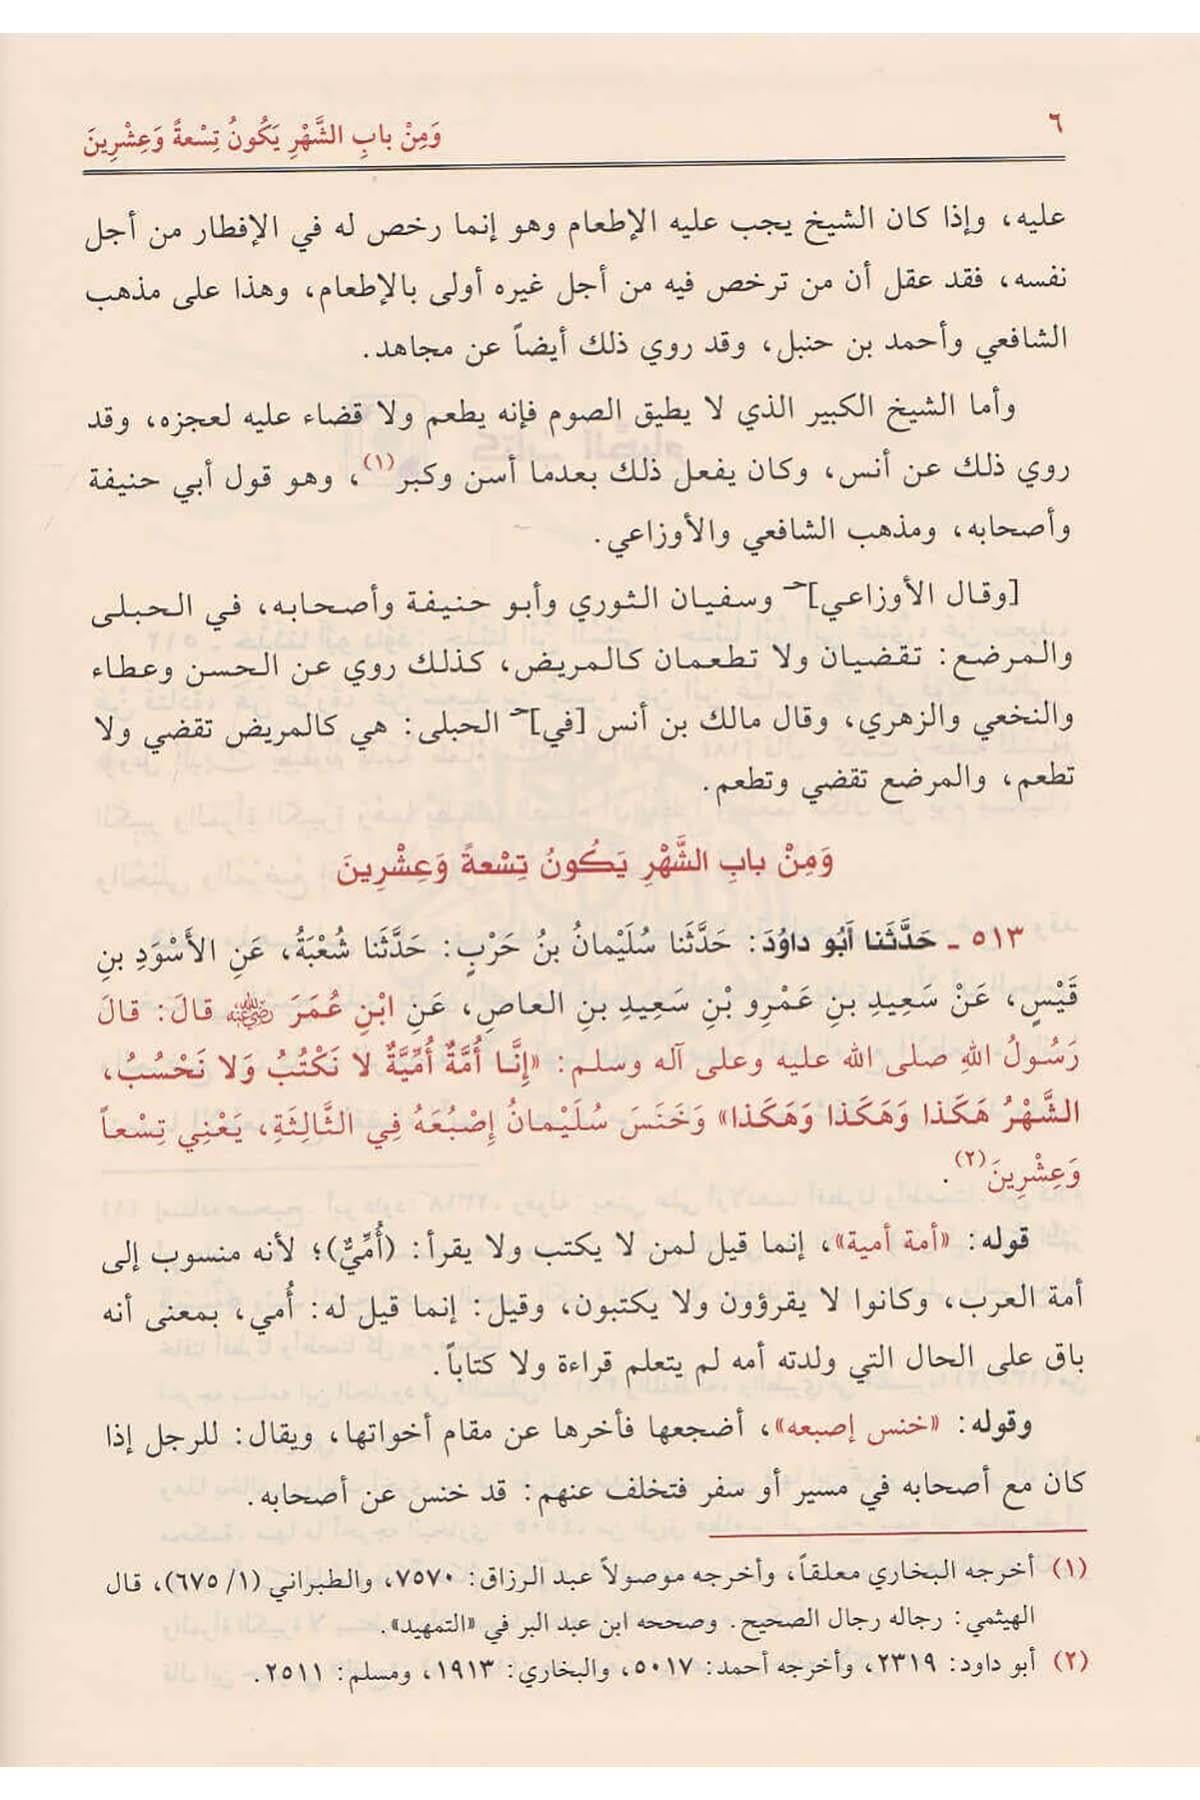 ٦
وَمِنْ بابِ الشَّهْرِ يَكُونُ تِسْعةً وَعِشْرِينَ
عليه، وإذا كان الشيخ يجب عليه الإطعام وهو إنما رخص له في الإفطار من أجل
نفسه، فقد عقل أن من ترخص فيه من أجل غيره أولى بالإطعام، وهذا على مذهب
الشافعي وأحمد بن حنبل، وقد روي ذلك أيضاً عن مجاهد.
وأما الشيخ الكبير الذي لا يطيق الصوم فإنه يطعم ولا قضاء عليه لعجزه، وقد
روي ذلك عن أنس، وكان يفعل ذلك بعدما أسن وكبر(١)، وهو قول أبي حنيفة
وأصحابه، ومذهب الشافعي والأوزاعي.
[وقال الأوزاعي]حـ وسفيان الثوري وأبو حنيفة وأصحابه، في الحبلى
والمرضع: تقضيان ولا تطعمان كالمريض، كذلك روي عن الحسن وعطاء
والنخعي والزهري، وقال مالك بن أنس [في]حـ الحبلى: هي كالمريض تقضي ولا
تطعم، والمرضع تقضي وتطعم.
وَمِنْ بابِ الشَّهْرِ يَكُونُ تِسْعةً وَعِشْرِينَ
٥١٣ ـ حَدَّثَنا أَبُو داوُدَ: حَدَّثَنا سُلَيْمانُ بنُ حَرْبٍ: حَدَّثَنا شُعْبَةُ، عَنِ الأَسْوَدِ بنِ
قَيْسٍ، عَنْ سَعِيدِ بنِ عَمْرِو بْنِ سَعِيدِ بنِ العاصِ، عَنِ ابْنِ عُمَرَ رضي الله عنه قالَ: قالَ
رَسُولُ اللهِ صلى الله عليه وعلى آله وسلم: «إِنَّا أُمَّةٌ أُمِّيَّةٌ لا نَكْتُبُ وَلا نَحْسُبُ،
الشَّهْرُ هَكَذا وَهَكَذا وَهَكَذا» وَخَنَسَ سُلَيْمانُ إِصْبُعَهُ فِي الثَّالِثَةِ، يَعْنِي تِسْعاً
وَعِشْرِينَ(٢).
قوله: «أمة أمية»، إنما قيل لمن لا يكتب ولا يقرأ: (أُمِّيٌّ)؛ لأنه منسوب إلى
أمة العرب، وكانوا لا يقرؤون ولا يكتبون، وقيل: إنما قيل له: أُمي، بمعنى أنه
باق على الحال التي ولدته أمه لم يتعلم قراءة ولا كتاباً.
وقوله: «خنس إصبعه»، أضجعها فأخرها عن مقام أخواتها، ويقال: للرجل إذا
كان مع أصحابه في مسير أو سفر فتخلف عنهم: قد خنس عن أصحابه.
(١) أخرجه البخاري معلقاً، وأخرجه موصولاً عبد الرزاق: ٧٥٧٠، والطبراني (١/ ٦٧٥)، قال
الهيثمي: رجاله رجال الصحيح. وصححه ابن عبد البر في «التمهيد».
(٢) أبو داود: ٢٣١٩، وأخرجه أحمد: ٥٠١٧، والبخاري: ١٩١٣، ومسلم: ٢٥١١.